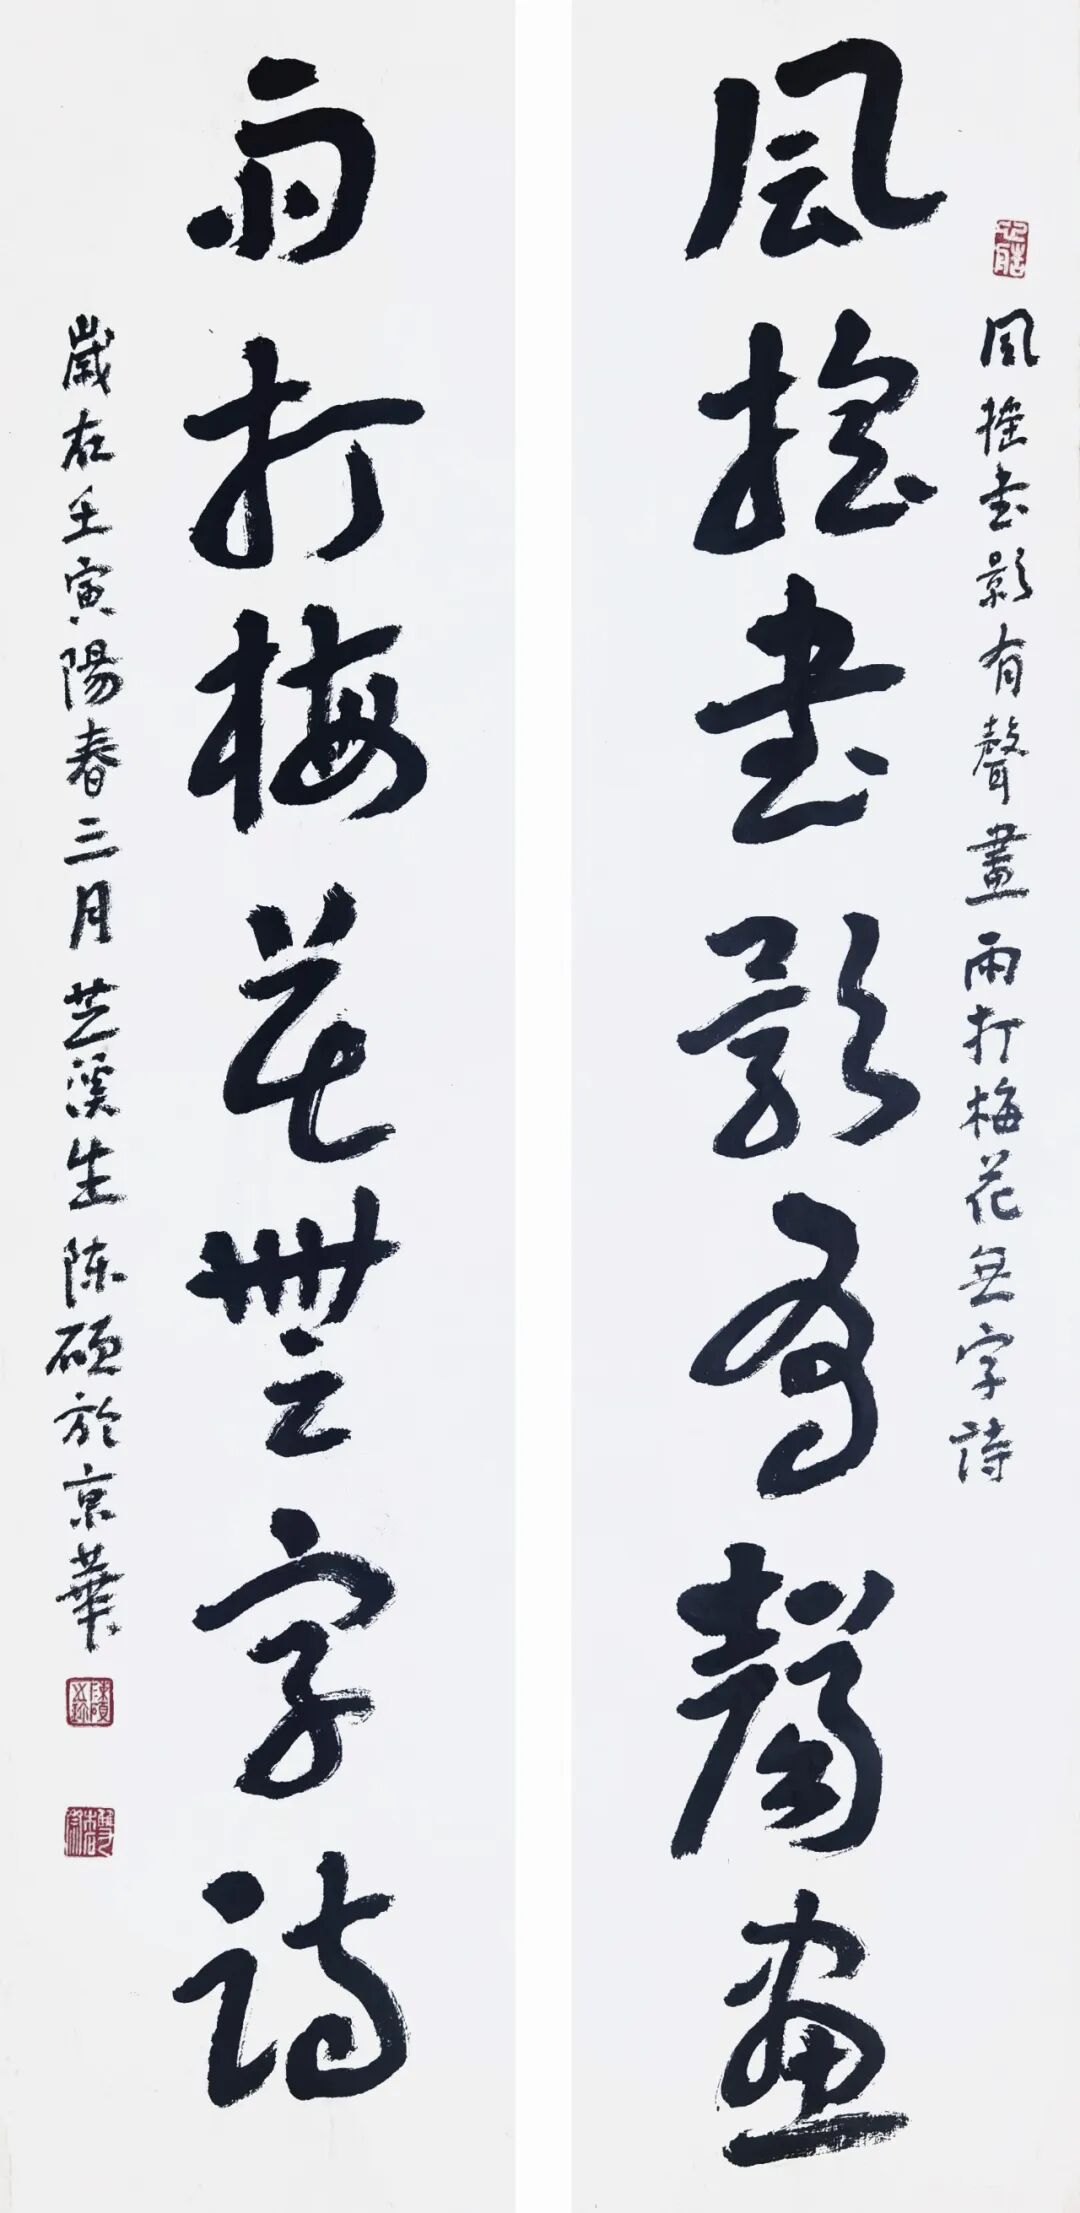 風搖書影有聲畫雨打梅花無字詩
風搖書影有聲畫
雨打梅花無字詩
歲在壬寅陽春三月芝溪生陈硕於京華